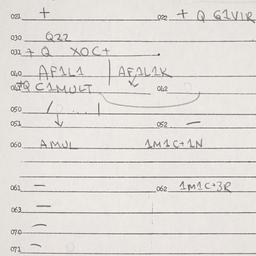 021 + 022 + Q G1VIR
030 Q22
032 + Q XOC+ .
040 AF1L1 | AF1L1K
Q C1MULT 062
050 /
051 052 —
060 AMUL 1M1C+1N
061 — 062 1M1C+3R
063 —
070 —
071 —